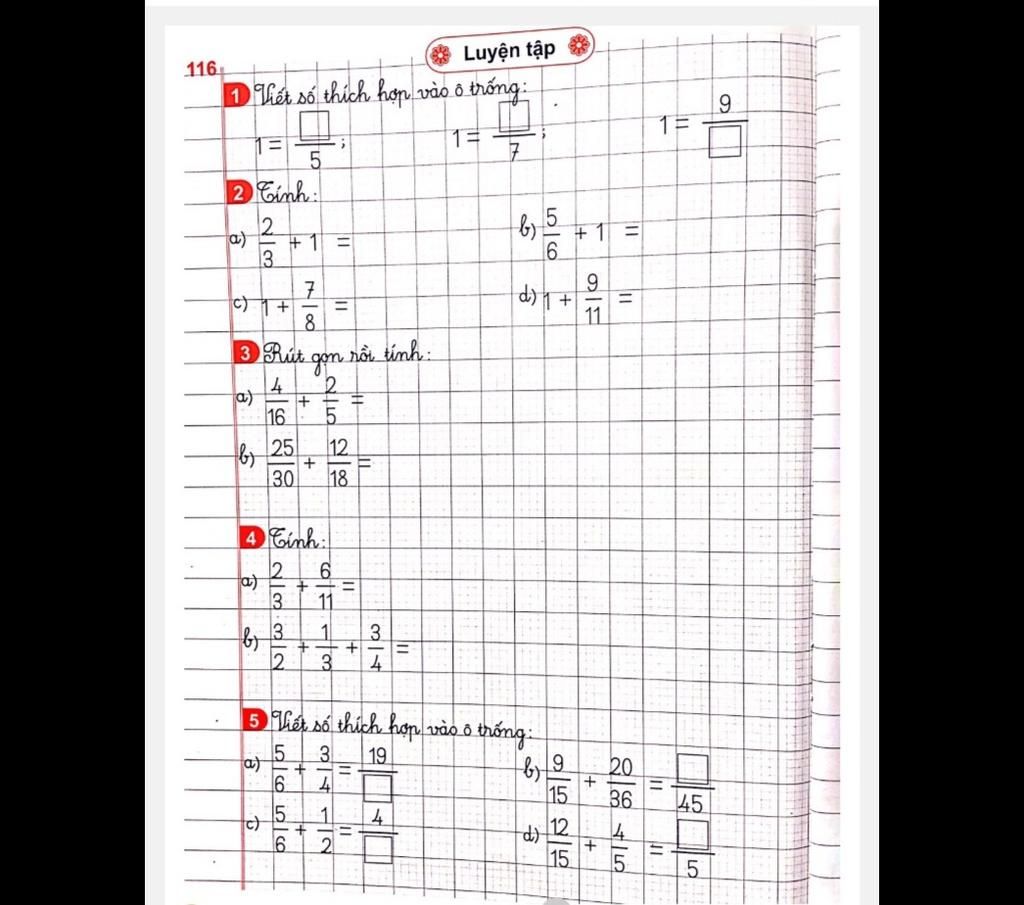 Luyện tập
116
1 Viết số thích hợp vào ô trống:
1 = □/5 ; 1 = □/7 ; 1 = 9/□
2 Tính:
a) 2/3 + 1 = b) 5/6 + 1 =
c) 1 + 7/8 = d) 1 + 9/11 =
3 Rút gọn rồi tính:
a) 4/16 + 2/5 =
b) 25/30 + 12/18 =
4 Tính:
a) 2/3 + 6/11 =
b) 3/2 + 1/3 + 3/4 =
5 Viết số thích hợp vào ô trống:
a) 5/6 + 3/4 = 19/□ b) 9/15 + 20/36 = □/45
c) 5/6 + 1/2 = 4/□ d) 12/15 + 4/5 = □/5